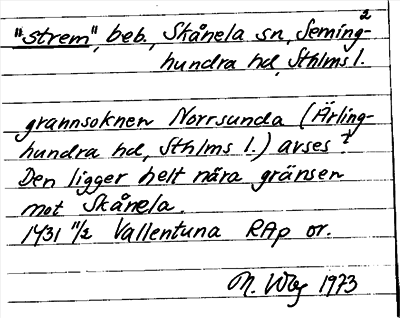 2
"strem", beb., Skånela sn, Seming-
hundra hd, Sthlms l.
grannsoknen Norrsunda (Ärling-
hundra hd, Sthlms l.) avses?
Den ligger helt nära gränsen
mot Skånela.
1431 11/2 Vallentuna RAp or.
M. 1973